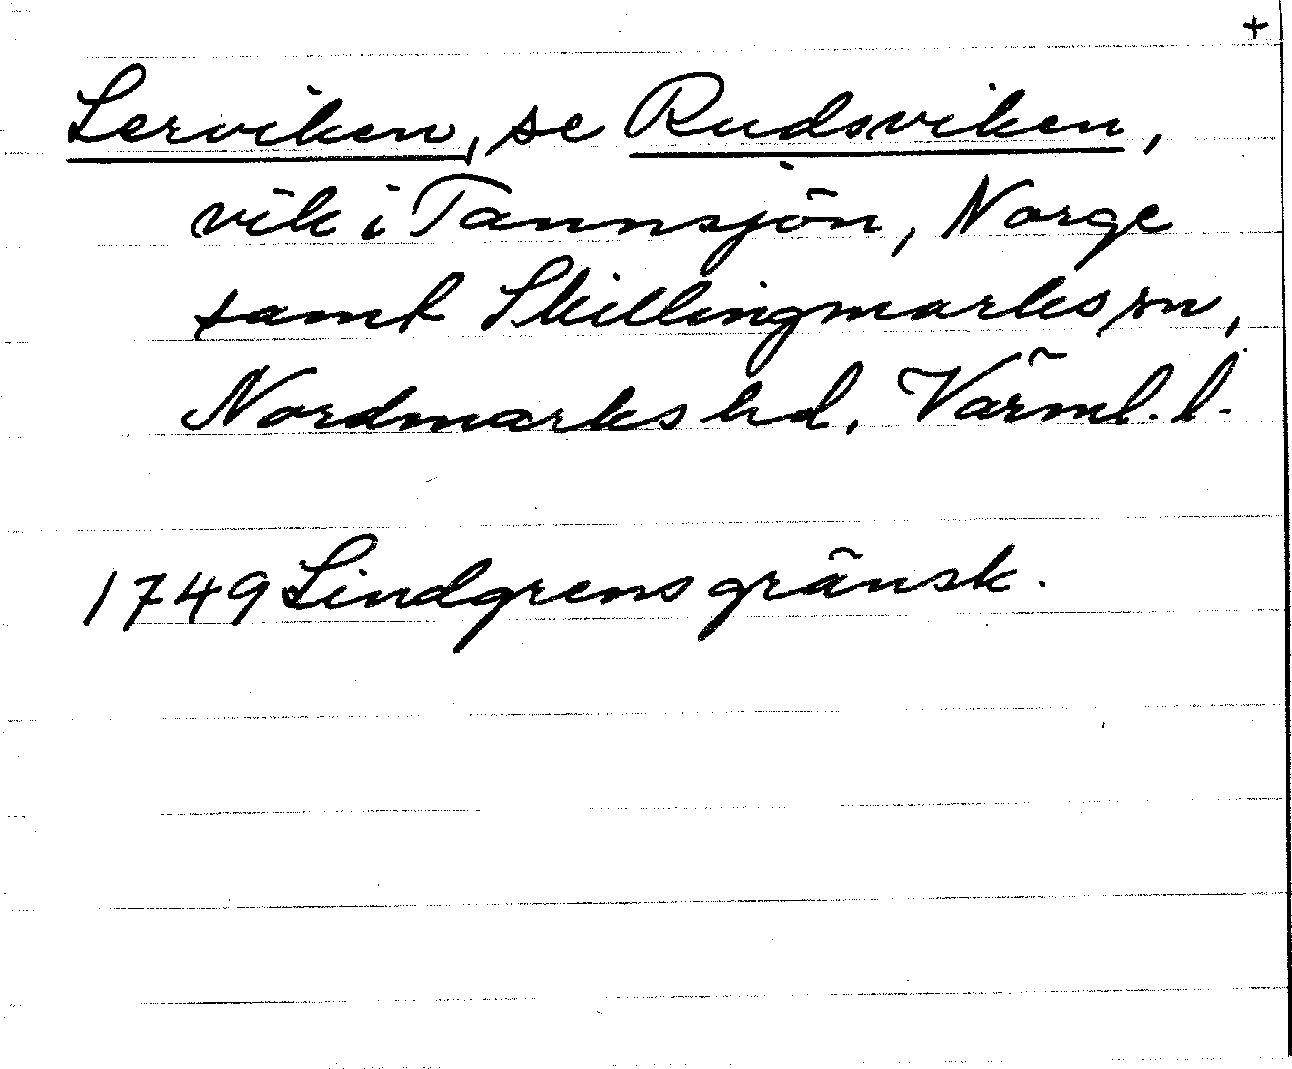 +
Lerviken, se Rudsviken,
vik i Tannsjön, Norge
samt Skillingmarks sn,
Nordmarks hd, Värml. l.
1749 Lindgrens gränsk.